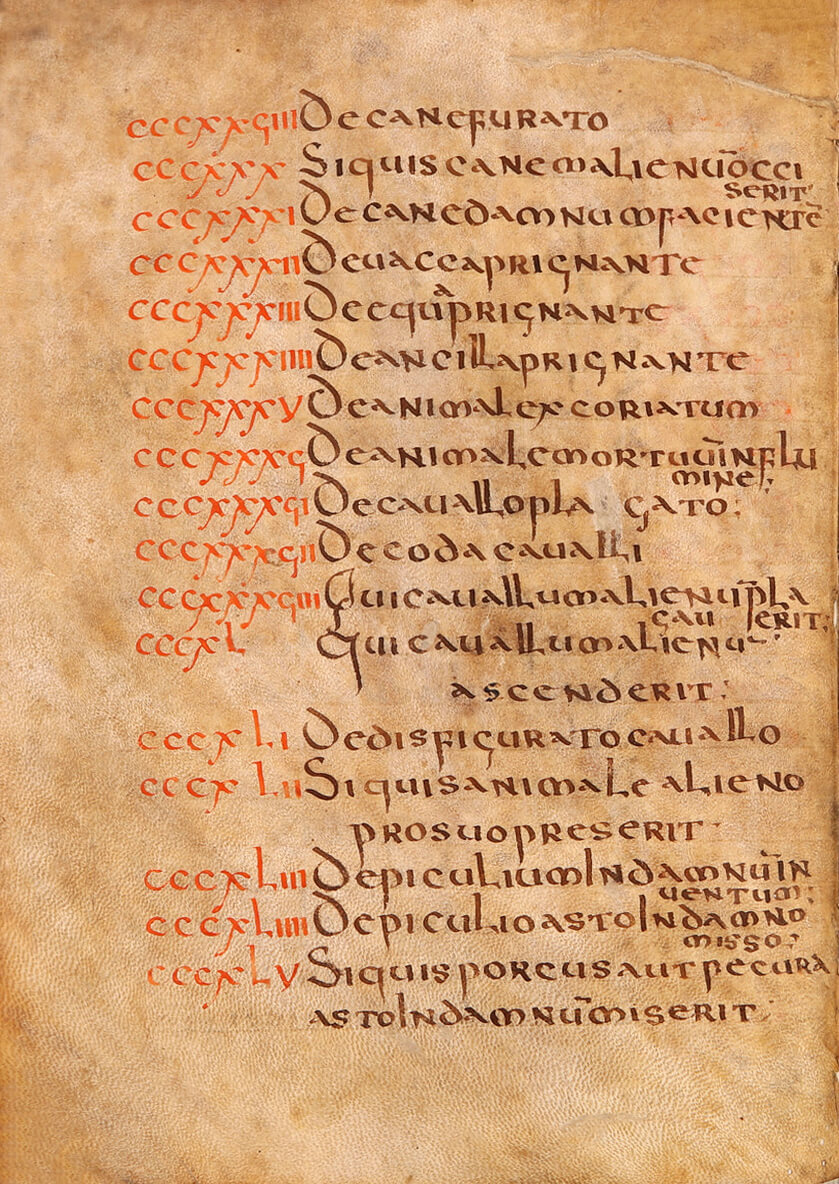 CCCXXϛIII De cane furato
CCCXXX Si quis canem alienū occi
serit;
CCCXXXI De cane damnum facientē
CCCXXXII De uacca prignante
CCCXXXIII De equa prignante
CCCXXXIIII De ancilla prignante
CCCXXXV De animal excoriatum
CCCXXXϛ De animale mortuū in flu
mine;
CCCXXXϛI De cauallo pla gato;
CCCXXXϛII De coda caualli
CCCXXXϛIII Qui cauallum alienū pla
gau erit;
CCCXL Qui cauallum alienū
ascenderit;
CCCXLI De disfigurato cauallo
CCCXLII Si quis animale alieno
pro suo preserit
CCCXLIII De piculium In damnū in
uentum;
CCCXLIIII De piculio asto In damno
misso;
CCCXLV Si quis porcus aut pecura
asto In damnū miserit